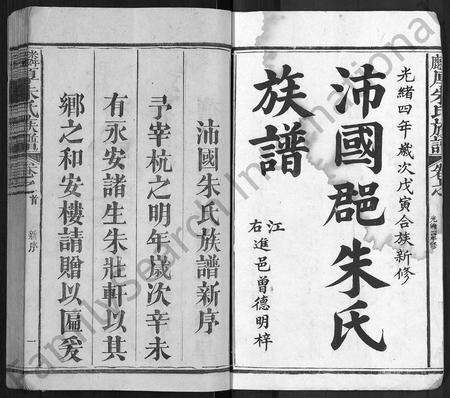 光緒四年歲次戊寅合族新修
沛國郡朱氏
族譜
江
右進邑曾德明梓
朱氏族譜
沛國朱氏族譜新序
予宰杭之明年歲次辛未
有永安諸生朱壯軒以其
鄉之和安樓請贈以匾爰
朱氏族譜
卷之首
新序
一
FamilySearch International